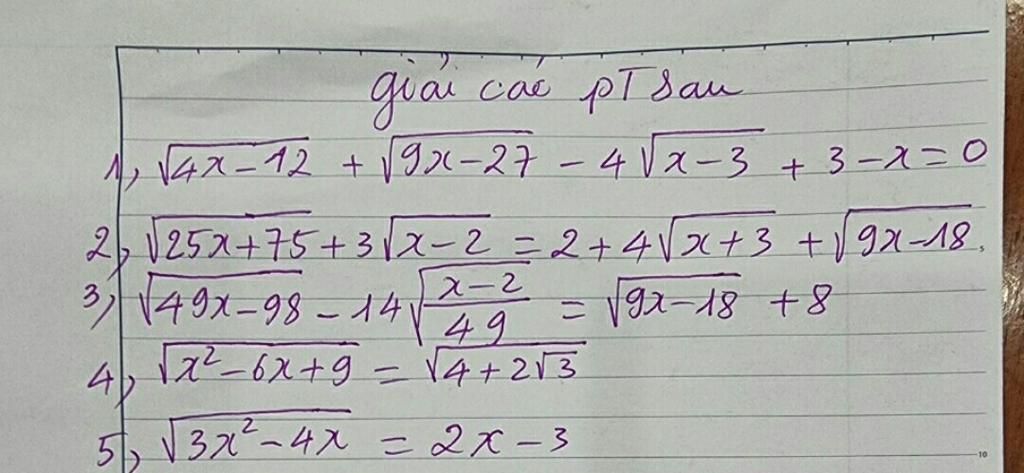 giải các pT sau
1, √(4x-12) + √(9x-27) - 4√(x-3) + 3-x = 0
2, √(25x+75) + 3√(x-2) = 2 + 4√(x+3) + √(9x-18).
3, √(49x-98) - 14√((x-2)/49) = √(9x-18) + 8
4, √(x²-6x+9) = √(4+2√3)
5, √(3x²-4x) = 2x-3
10